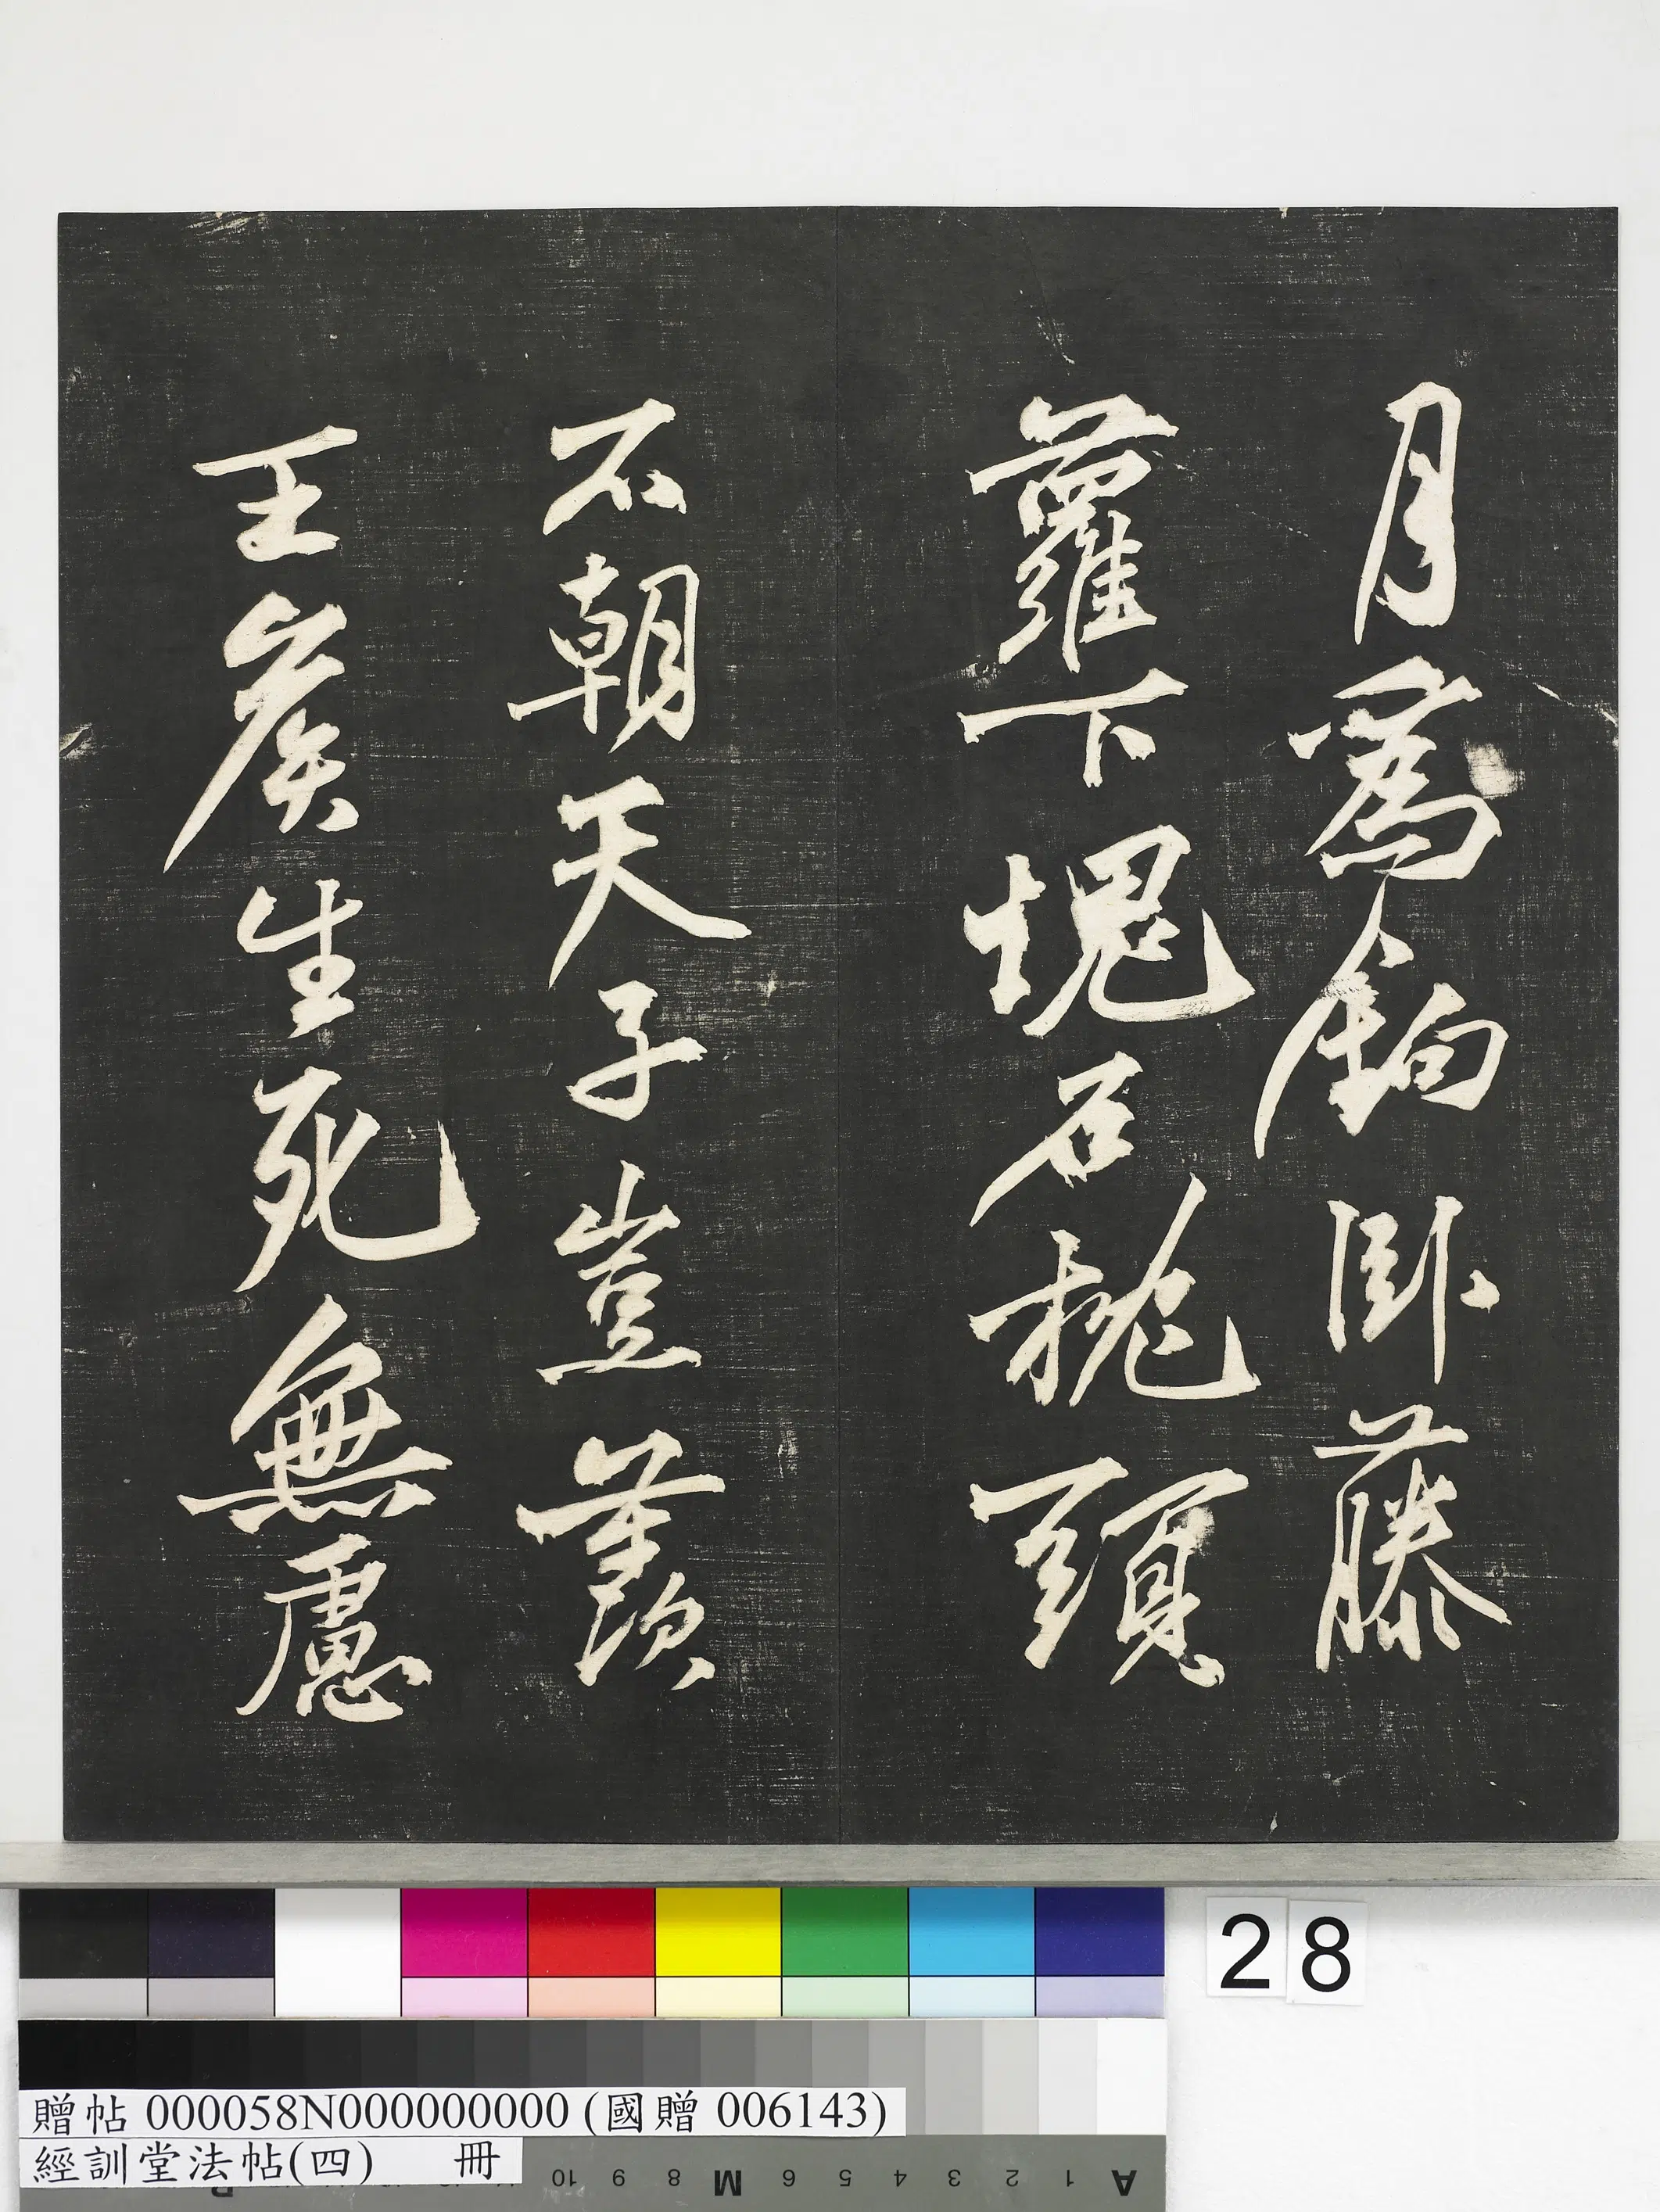 月為鉤臥藤
蘿下塊石枕頭
不朝天子豈羨
王侯生死無慮
28
贈帖 000058N000000000 (國贈 006143)
經訓堂法帖(四) 冊
A 1 2 3 4 5 6 M 8 9 10